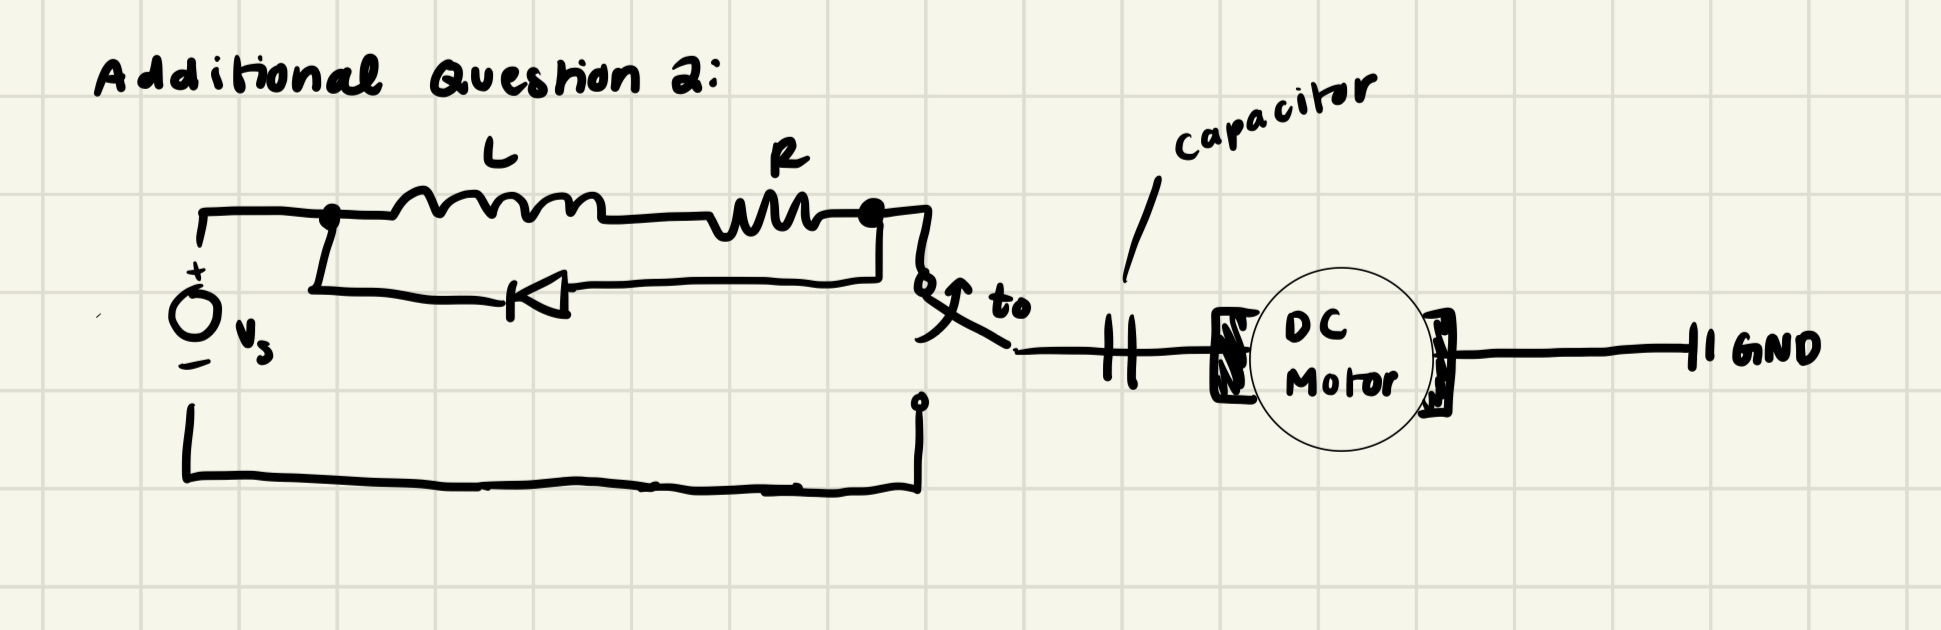 Additional Question 2:
capacitor
L
R
+
Vs
-
to
DC
Motor
GND